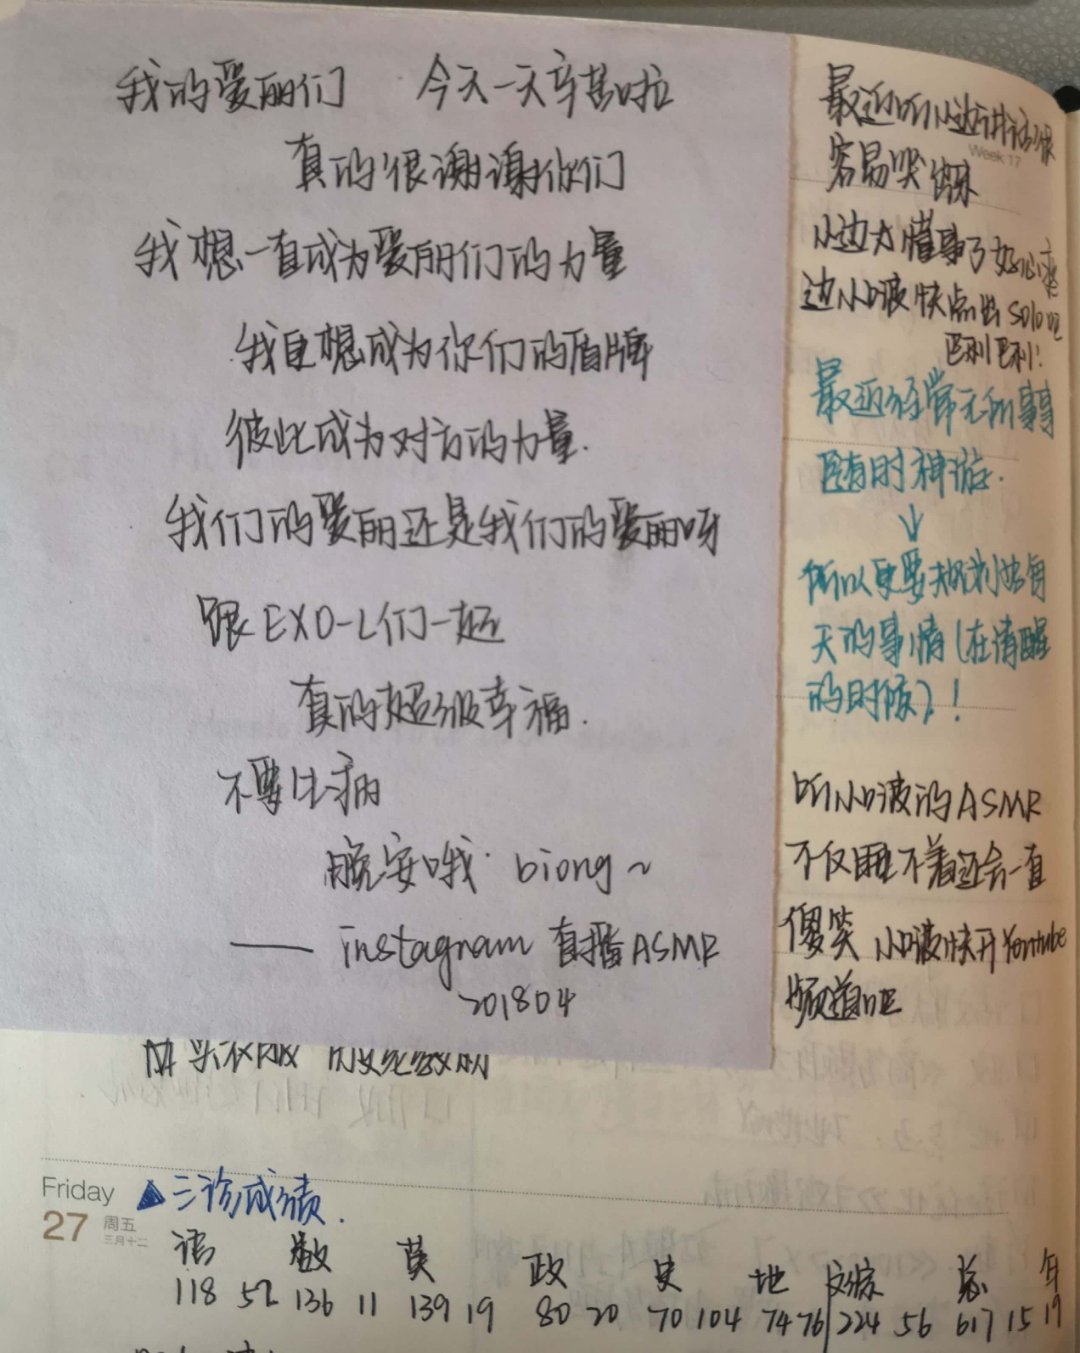 我的爱丽们 今天一天辛苦啦
真的很谢谢你们
我想一直成为爱丽们的力量
我更想成为你们的盾牌
彼此成为对方的力量.
我们的爱丽还是我们的爱丽呀
跟EXO-L们一起
真的超级幸福.
不要生病
晚安哦. biong~
—— instagram 直播ASMR
201804
最近听小边讲话很
Week 17
容易哭出来
小边太懂事了好心疼
边小啵快点出solo吧
巨利巨利!
最近经常无所事事
随时神游.
↓
所以更要规划好每
天的事情(在清醒
的时候)!
听小啵的ASMR
不仅睡不着还会一直
傻笑 小啵快开Youtube
频道吧
Friday
27 周五
三月十二
三诊成绩.
语 数 英 政 史 地 文综 总 年
118 52 136 11 139 19 80 20 70 104 74 76 224 56 617 15 19